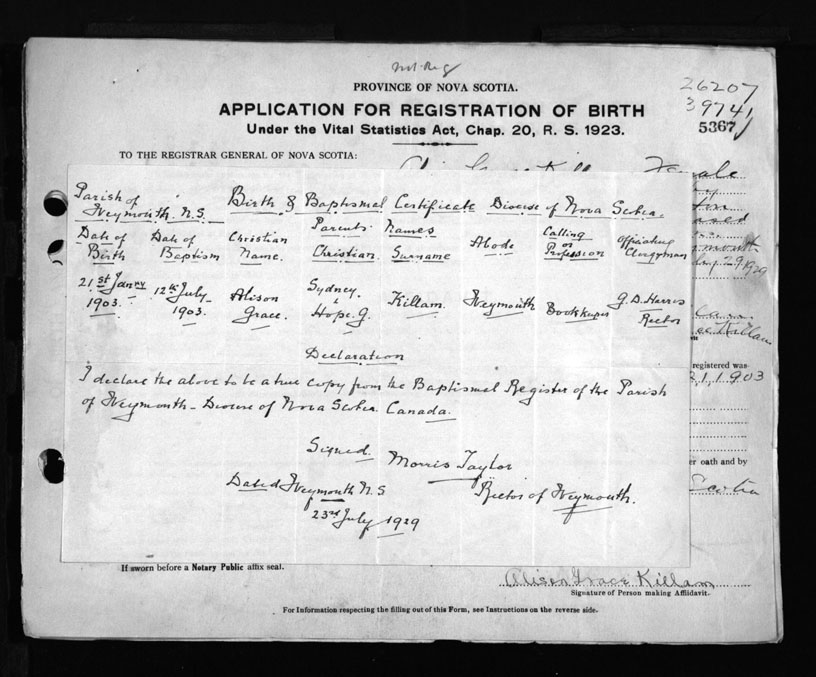 Not Reg
PROVINCE OF NOVA SCOTIA.
26207
39741
5367
APPLICATION FOR REGISTRATION OF BIRTH
Under the Vital Statistics Act, Chap. 20, R. S. 1923.
TO THE REGISTRAR GENERAL OF NOVA SCOTIA:
Female
Parish of Weymouth. N.S. Birth & Baptismal Certificate Diocese of Nova Scotia.
Date of Birth Date of Baptism Christian Name. Parents' Names Christian Surname Abode Calling or Profession Officiating Clergyman
21st Janry 1903. 12th July 1903. Alison Grace. Sydney. & Hope. G. Killam. Weymouth Bookkeeper G. D. Harris Rector
29 1929
Killam
registered was
21, 1903
Declaration
I declare the above to be a true copy from the Baptismal Register of the Parish
of Weymouth - Diocese of Nova Scotia. Canada.
Signed. Morris Taylor
er oath and by
Scotia
Dated Weymouth N.S Rector of Weymouth.
23rd July 1929
If sworn before a Notary Public affix seal.
Alison Grace Killam
Signature of Person making Affidavit.
For Information respecting the filling out of this Form, see Instructions on the reverse side.